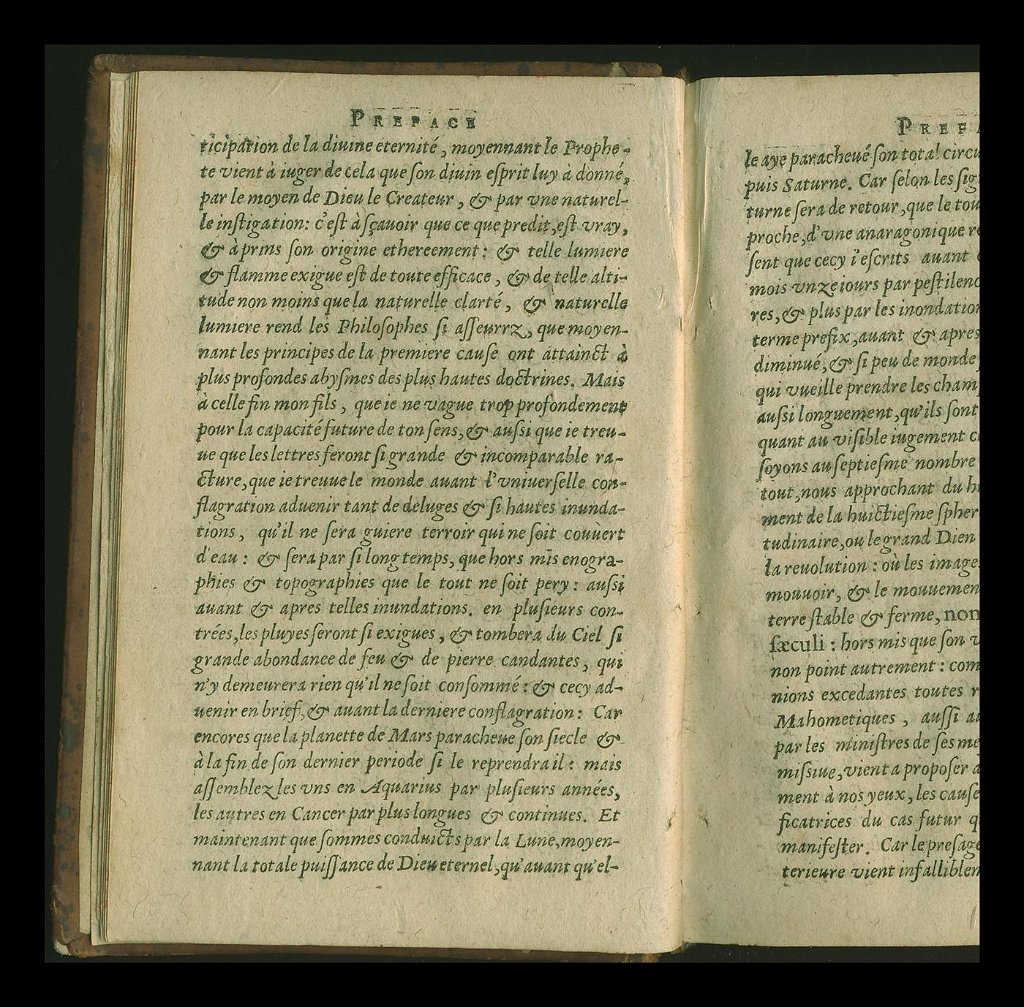 PREFACE
ticipation de la diuine eternité, moyennant le Prophe-
te vient à iuger de cela que son diuin esprit luy a donné,
par le moyen de Dieu le Createur, & par vne naturel-
le instigation: c'est à sçauoir que ce que predit, est vray,
& à prins son origine ethereement: & telle lumiere
& flamme exigue est de toute efficace, & de telle alti-
tude non moins que la naturelle clarté, & naturelle
lumiere rend les Philosophes si asseurrz, que moyen-
nant les principes de la premiere cause ont attainct à
plus profondes abysmes des plus hautes doctrines. Mais
à celle fin mon fils, que ie ne vague trop profondement
pour la capacité future de ton sens, & aussi que ie treu-
ue que les lettres feront si grande & incomparable ra-
cture, que ie treuue le monde auant l'vniuerselle con-
flagration aduenir tant de deluges & si hautes inunda-
tions, qu'il ne sera guiere terroir qui ne soit couuert
d'eau: & sera par si long temps, que hors mis enogra-
phies & topographies que le tout ne soit pery: aussi
auant & apres telles inundations. en plusieurs con-
trées, les pluyes seront si exigues, & tombera du Ciel si
grande abondanee de feu & de pierre candantes, qui
n'y demeurera rien qu'il ne soit consommé: & cecy ad-
uenir en brief, & auant la derniere conflagration: Car
encores que la planette de Mars paracheue son siecle &
à la fin de son dernier periode si le reprendra il: mais
assemblez les vns en Aquarius par plusieurs années,
les autres en Cancer par plus longues & continues. Et
maintenant que sommes conduicts par la Lune, moyen-
nant la totale puissance de Dieu eternel, qu'auant qu'el-
PREFA
le aye paracheué son total circu
puis Saturne. Car selon les sig
turne sera de retour, que le tou
proche, d'vne anaragonique re
sent que cecy i'escrits auant
mois vnze iours par pestilenc
res, & plus par les inondation
terme prefix, auant & apres
diminué, & si peu de monde
qui vueille prendre les cham
aussi longuement, qu'ils sont
quant au visible iugement c
soyons au septiesme nombre
tout, nous approchant du h
ment de la huictiesme spher
tudinaire, ou le grand Dien
la reuolution: où les image
mouuoir, & le mouuemen
terre stable & ferme, non
sæculi: hors mis que son v
non point autrement: com
nions excedantes toutes r
Mahometiques, aussi a
par les ministres de ses me
missiue, vient a proposer a
ment à nos yeux, les cause
ficatrices du cas futur q
manifester. Car le presage
terieure vient infalliblen